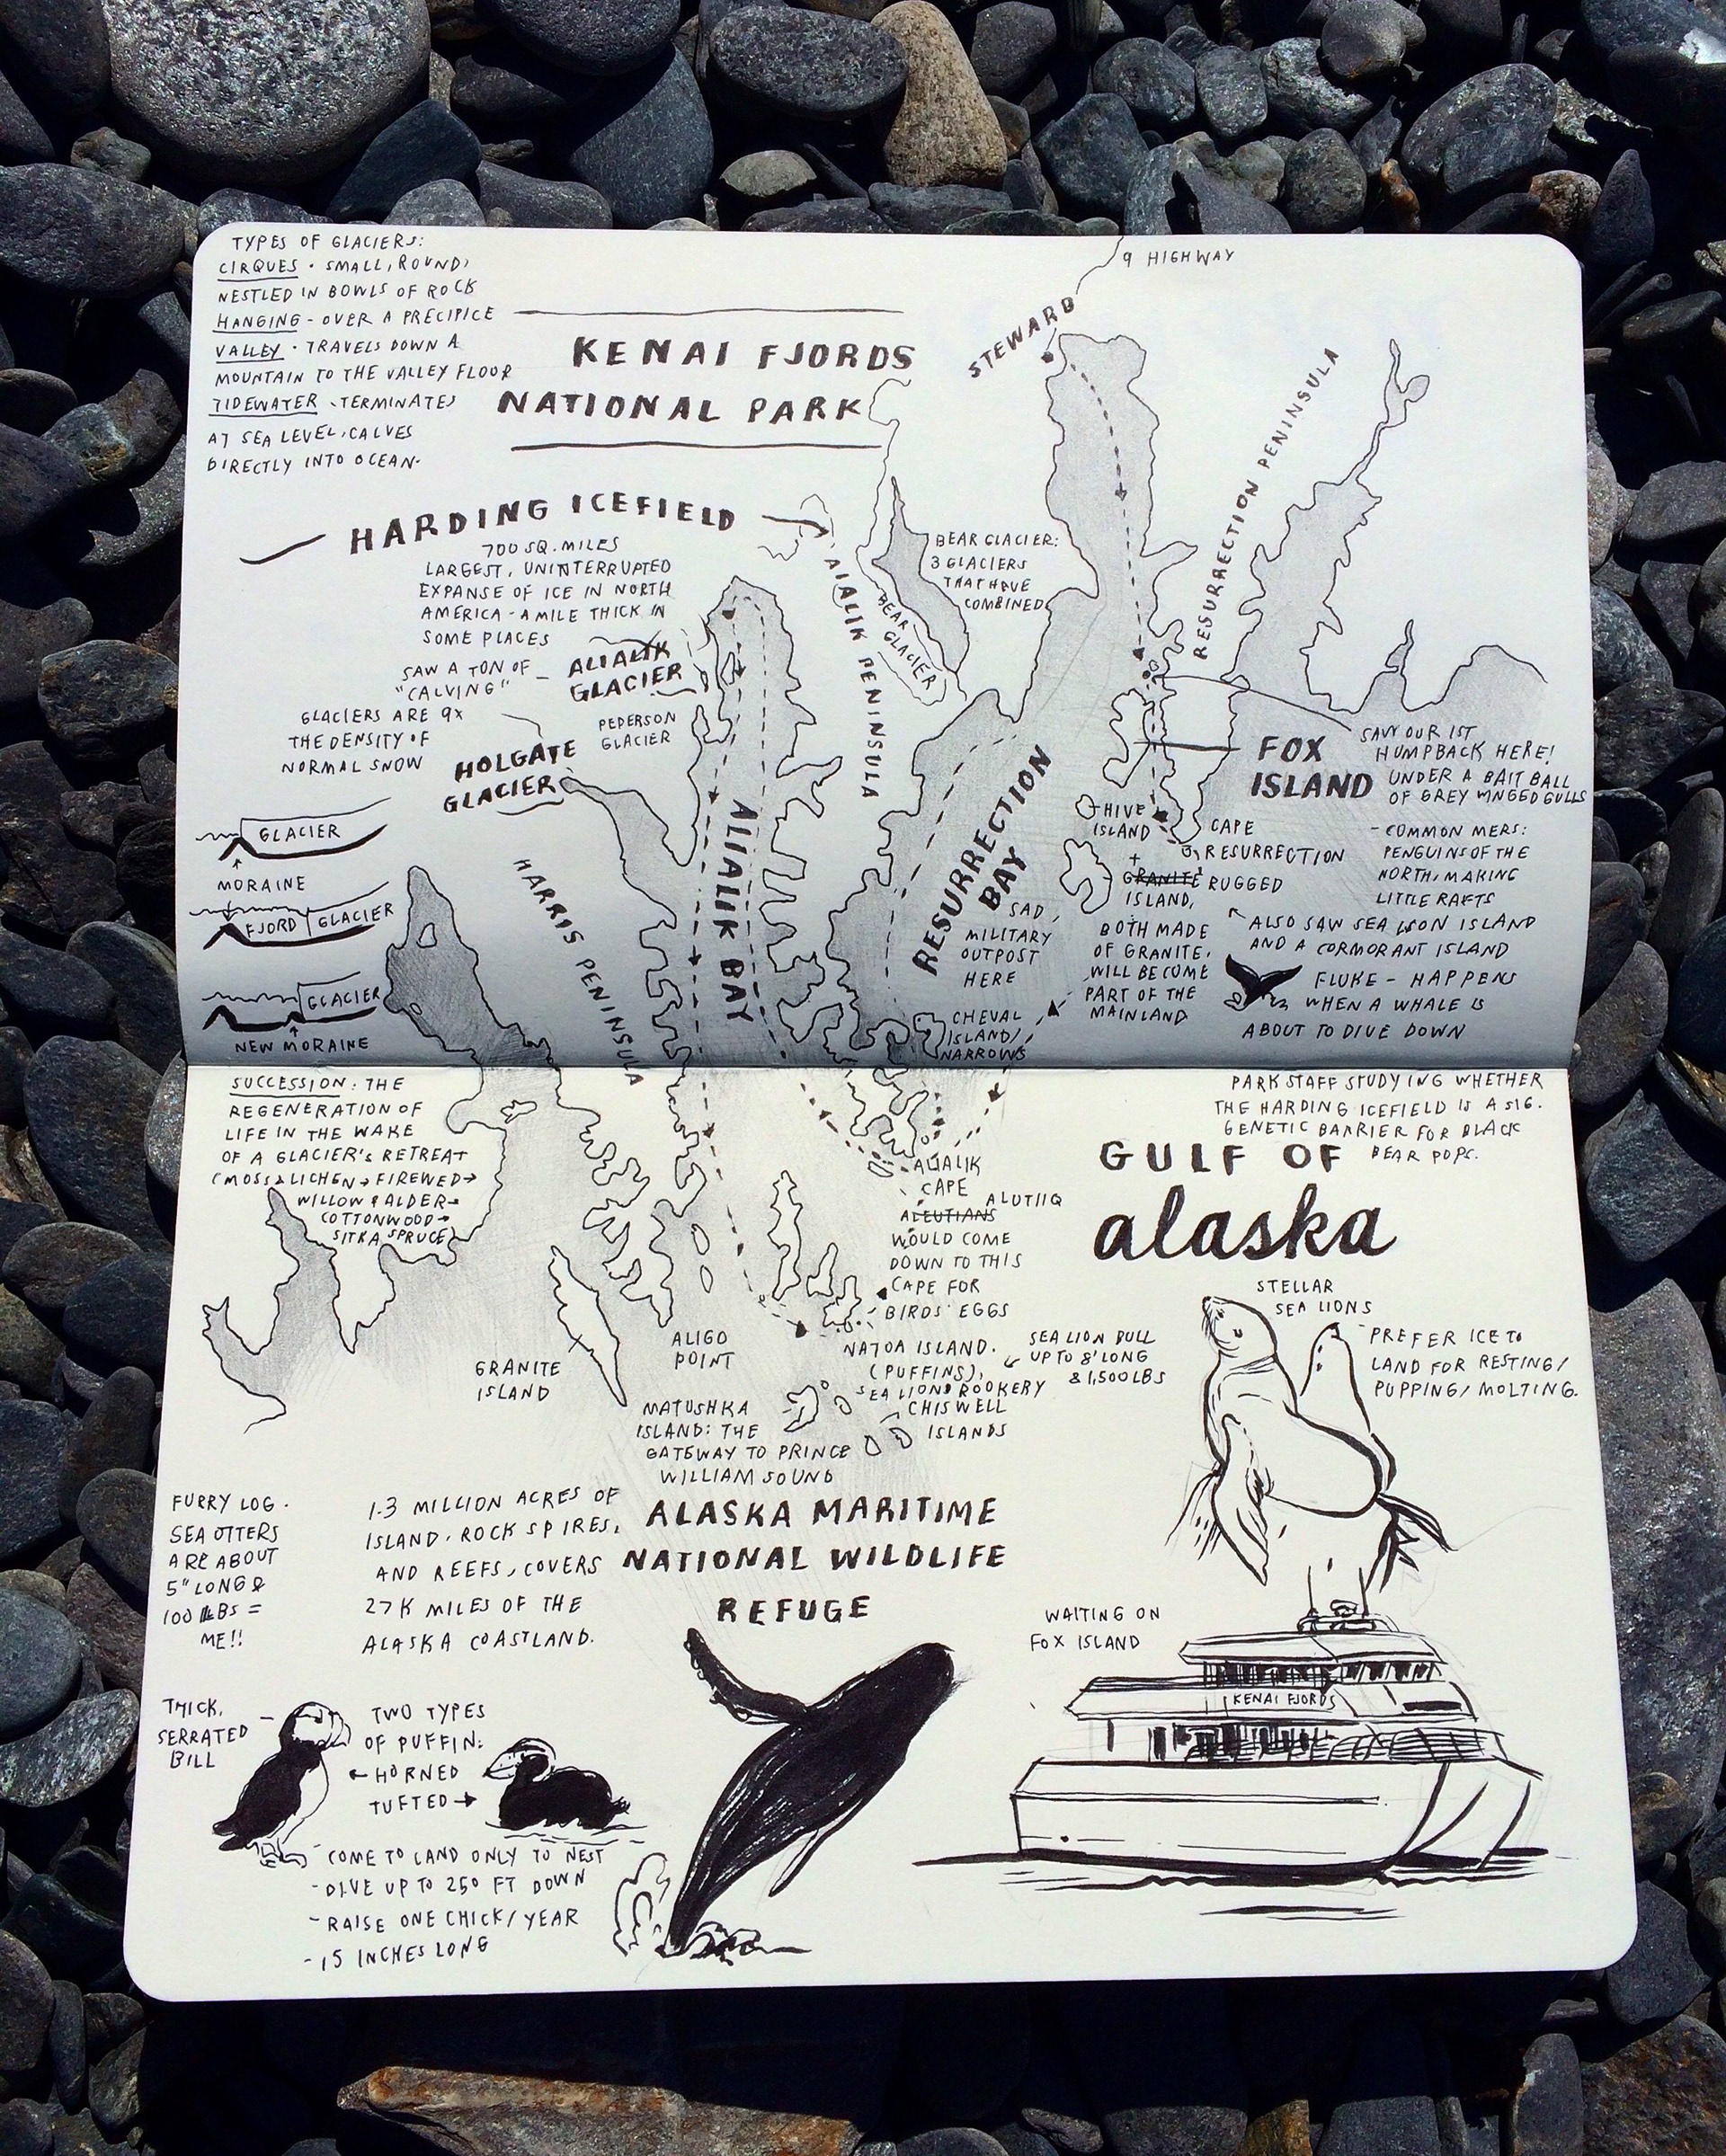 TYPES OF GLACIERS:
CIRQUES · SMALL, ROUND,
NESTLED IN BOWLS OF ROCK
HANGING - OVER A PRECIPICE
VALLEY · TRAVELS DOWN A
MOUNTAIN TO THE VALLEY FLOOR
TIDEWATER - TERMINATES
AT SEA LEVEL, CALVES
DIRECTLY INTO OCEAN.
KENAI FJORDS
NATIONAL PARK
9 HIGHWAY
STEWARD
RESURRECTION PENINSULA
HARDING ICEFIELD
700 SQ. MILES
LARGEST, UNINTERRUPTED
EXPANSE OF ICE IN NORTH
AMERICA - A MILE THICK IN
SOME PLACES
SAW A TON OF -
"CALVING"
ALIALIK
GLACIER
GLACIERS ARE 9X
THE DENSITY OF
NORMAL SNOW
PEDERSON
GLACIER
HOLGATE
GLACIER
AIALIK PENINSULA
BEAR
GLACIER
BEAR GLACIER:
3 GLACIERS
THAT HAVE
COMBINED
GLACIER
MORAINE
FJORD
GLACIER
GLACIER
NEW MORAINE
HARRIS PENINSULA
ALIALIK BAY
RESURRECTION
BAY
SAD,
MILITARY
OUTPOST
HERE
FOX
ISLAND
SAW OUR 1ST
HUMPBACK HERE!
UNDER A BAIT BALL
OF GREY WINGED GULLS
HIVE
ISLAND
+
GRANITE
ISLAND,
BOTH MADE
OF GRANITE,
WILL BECOME
PART OF THE
MAINLAND
CAPE
RESURRECTION
RUGGED
- COMMON MERS:
PENGUINS OF THE
NORTH, MAKING
LITTLE RAFTS
ALSO SAW SEA LION ISLAND
AND A CORMORANT ISLAND
FLUKE - HAPPENS
WHEN A WHALE IS
ABOUT TO DIVE DOWN
CHEVAL
ISLAND/
NARROWS
SUCCESSION: THE
REGENERATION OF
LIFE IN THE WAKE
OF A GLACIER'S RETREAT
(MOSS & LICHEN → FIREWED →
WILLOW & ALDER →
COTTONWOOD →
SITKA SPRUCE)
PARK STAFF STUDYING WHETHER
THE HARDING ICEFIELD IS A SIG.
GENETIC BARRIER FOR BLACK
BEAR POPS.
GULF OF
alaska
ALIALIK
CAPE
ALEUTIANS ALUTIIQ
WOULD COME
DOWN TO THIS
CAPE FOR
BIRDS' EGGS
GRANITE
ISLAND
ALIGO
POINT
NATOA ISLAND.
(PUFFINS),
SEA LIONS ROOKERY
CHISWELL
ISLANDS
SEA LION BULL
UP TO 8' LONG
& 1,500 LBS
MATUSHKA
ISLAND: THE
GATEWAY TO PRINCE
WILLIAM SOUND
STELLAR
SEA LIONS
PREFER ICE TO
LAND FOR RESTING/
PUPPING/MOLTING.
FURRY LOG.
SEA OTTERS
ARE ABOUT
5" LONG &
100 LBS =
ME!!
1.3 MILLION ACRES OF
ISLAND, ROCK SPIRES,
AND REEFS, COVERS
27K MILES OF THE
ALASKA COASTLAND.
ALASKA MARITIME
NATIONAL WILDLIFE
REFUGE
WAITING ON
FOX ISLAND
KENAI FJORDS
THICK,
SERRATED
BILL
TWO TYPES
OF PUFFIN:
← HORNED
TUFTED →
- COME TO LAND ONLY TO NEST
- DIVE UP TO 250 FT DOWN
- RAISE ONE CHICK/YEAR
- 15 INCHES LONG